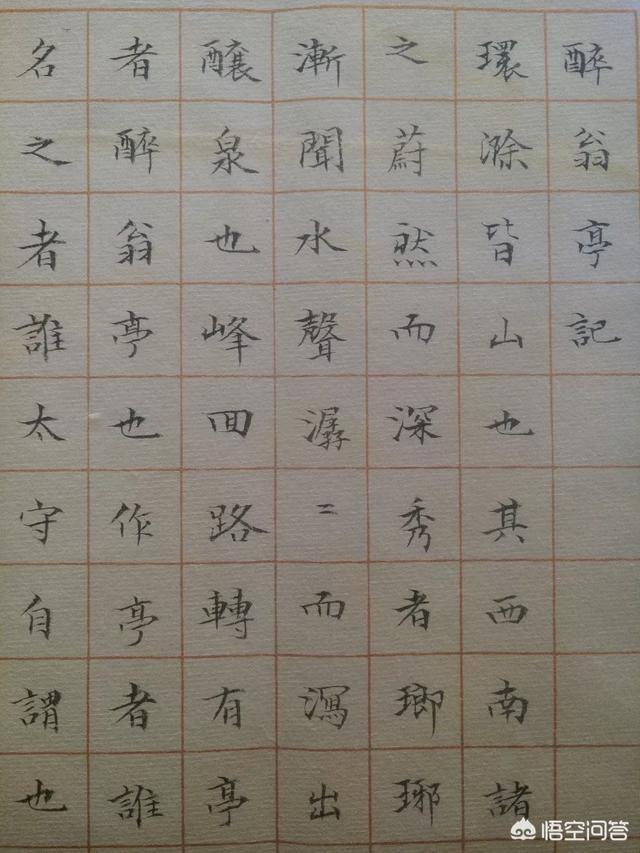 醉翁亭記
環滁皆山也其西南諸
之蔚然而深秀者瑯琊
漸聞水聲潺二而瀉出
釀泉也峰囬路轉有亭
者醉翁亭也作亭者誰
名之者誰太守自謂也
悟空问答